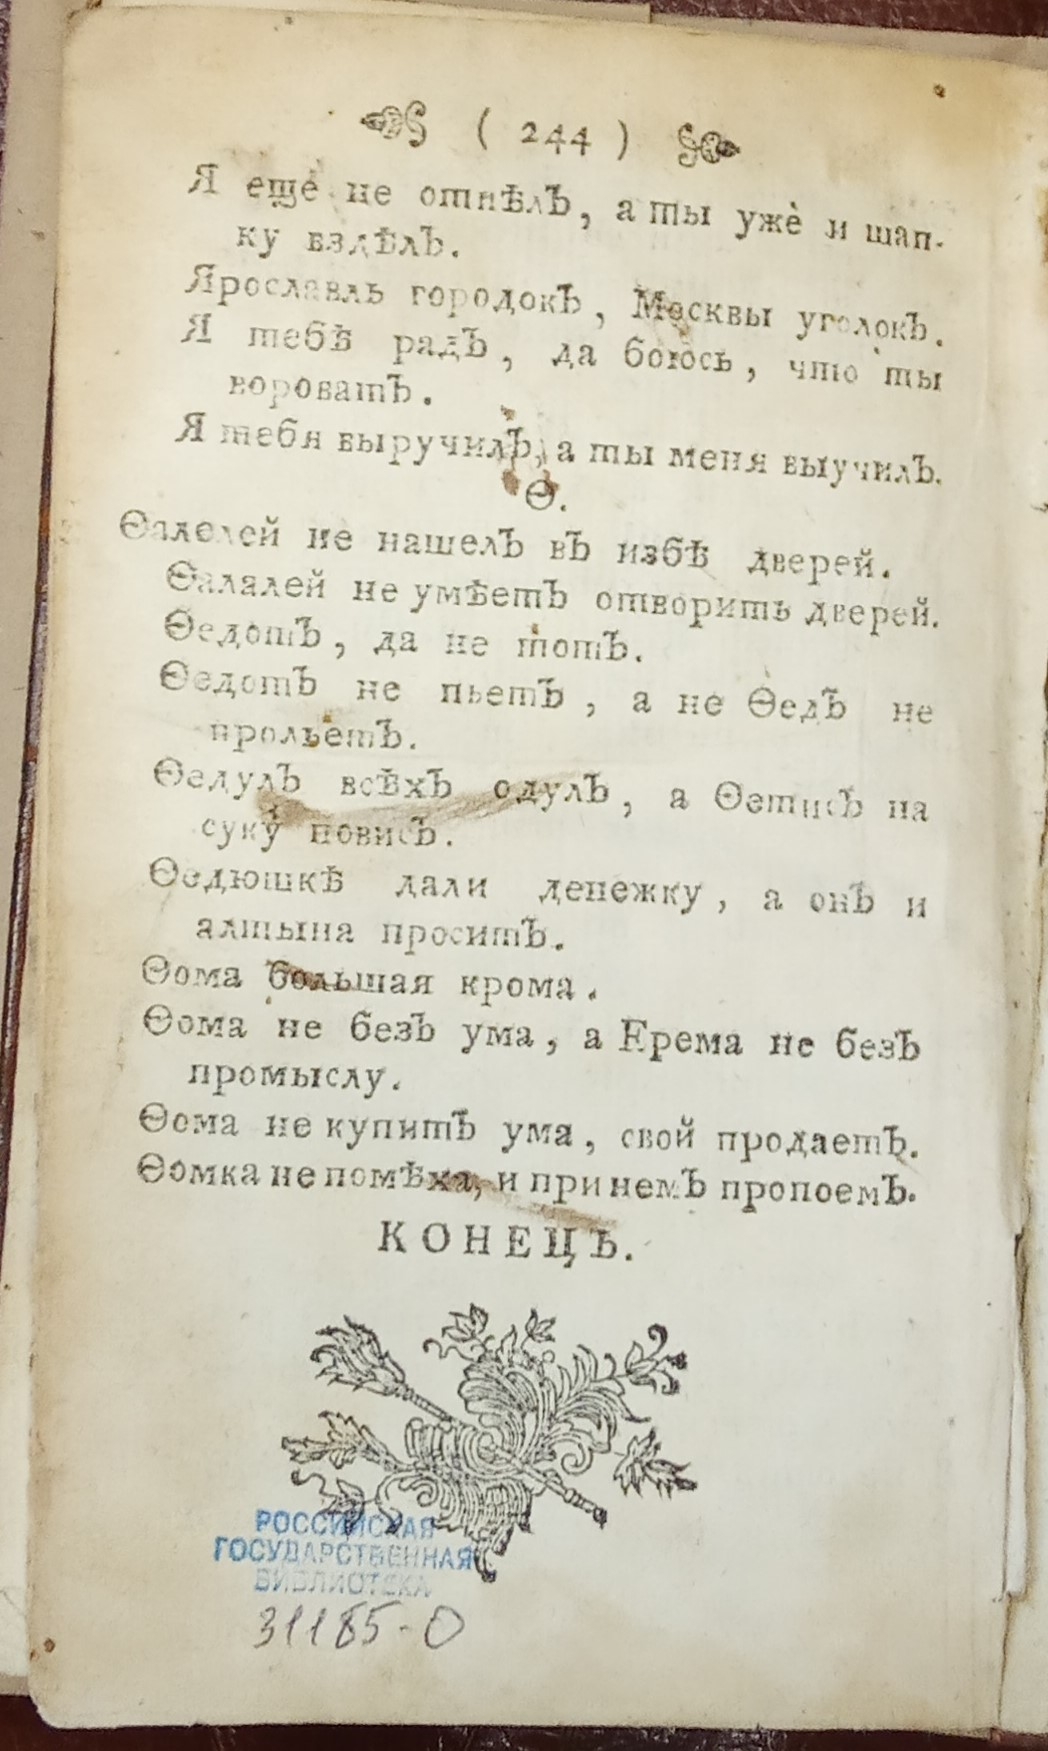 ( 244 )
Я еще́ не отпѣлъ, а ты ужѐ и шап-
ку вздѣлъ.
Ярославль городокъ, Москвы уголокъ.
Я тебѣ радъ, да боюсь, что ты
вороватъ.
Я тебя выручилъ, а ты меня выучилъ.
Ѳ.
Ѳалелей не нашелъ въ избѣ дверей.
Ѳалалей не умѣетъ отворить дверей.
Ѳедотъ, да не тотъ.
Ѳедотъ не пьетъ, а не Ѳедъ не
прольетъ.
Ѳедулъ всѣхъ одулъ, а Ѳетисъ на
суку́ повисъ.
Ѳедюшкѣ дали денежку, а онъ и
алтына проситъ.
Ѳома большая крома.
Ѳома не безъ ума, а Ерема не безъ
промыслу.
Ѳома не купитъ ума, свой продаетъ.
Ѳомка не помѣха, и при немъ пропоемъ.
КОНЕЦЪ.
РОССИЙСКАЯ
ГОСУДАРСТВЕННАЯ
БИБЛИОТЕКА
31185-0